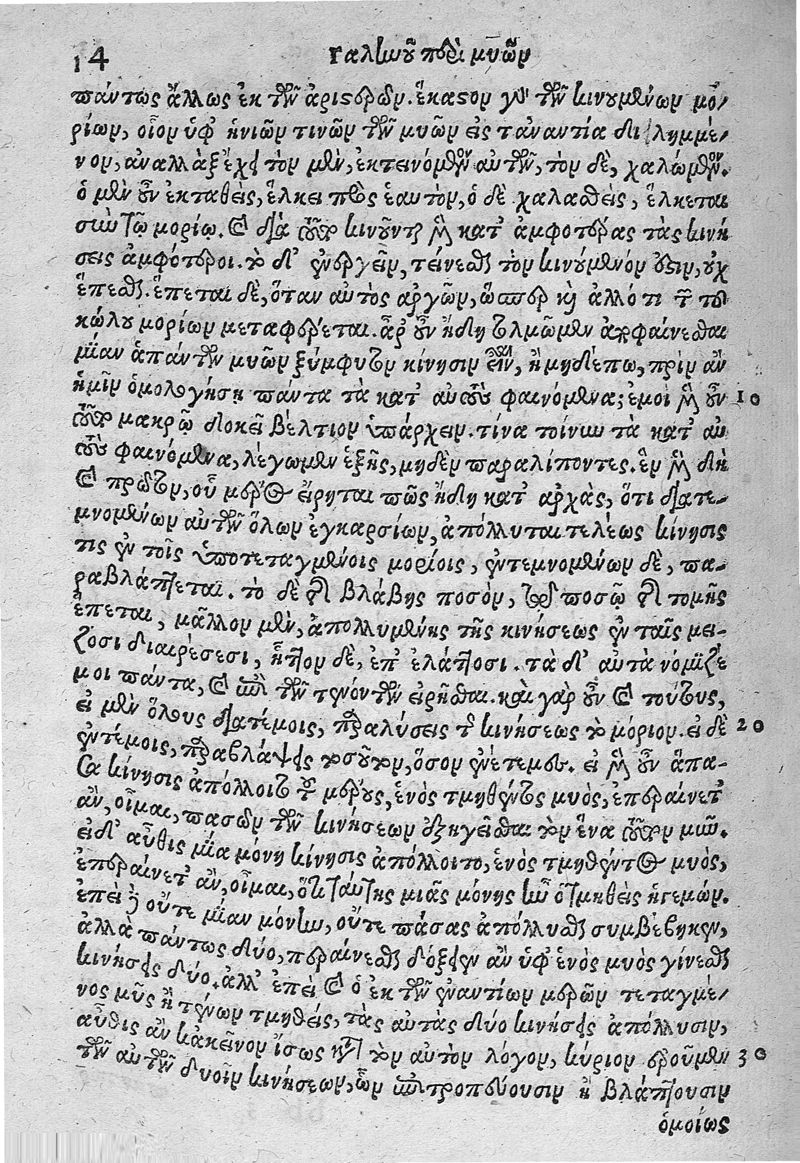 14 Γαλιωοῦ περὶ μυῶν
πάντως ἄλλως ἐκ τῶν ἀριστερῶν. ἕκαστον γὰρ τῶν κινουμένων μο-
ρίων, οἷον ὑφ' ἡνιῶν τινῶν τῶν μυῶν εἰς τἀναντία διειλημμέ-
νον, ἀναλλὰξ ἕλκει τὸν μὲν, ἐκτεινόμενον αὐτῶν, τὸν δὲ, χαλώμενον.
ὁ μὲν οὖν ἐκταθεὶς, ἕλκει πρὸς ἑαυτὸν, ὁ δὲ χαλασθεὶς, ἕλκεται
σὺν τῷ μορίῳ. καὶ διὰ τοῦτο κινοῦνται μὲν κατ' ἀμφοτέρας τὰς κινή
σεις ἀμφότεροι. τὸ δ' ἐνεργεῖν, τείνεσθαι τὸν κινούμενόν ἐστιν, οὐχ
ἕπεσθαι. ἕπεται δὲ, ὅταν αὐτὸς ἀργῶν, ὥσπερ καὶ ἄλλό τι τῶν τοῦ
κώλου μορίων μεταφέρεται. ἆρ' οὖν ἤδη τολμῶμεν ἀποφαίνεσθαι
μίαν ἁπάντων μυῶν ξύμφυτον κίνησιν εἶναι, ἢ μηδέπω, πρὶν ἂν
ἡμῖν ὁμολογήσῃ πάντα τὰ κατ' αὐτοὺς φαινόμενα; ἐμοὶ μὲν οὖν 10
τοῦτο μακρῷ δοκεῖ βέλτιον ὑπάρχειν. τίνα τοίνυν τὰ κατ' αὐ
τοὺς φαινόμενα, λέγωμεν ἑξῆς, μηδὲν παραλίποντες. ἓν μὲν δὴ
καὶ πρῶτον, οὗ μέρος εἴρηται πῶς ἤδη κατ' ἀρχὰς, ὅτι διατε-
μνομένων αὐτῶν ὅλων ἐγκαρσίων, ἀπόλλυται τελέως κίνησις
τις ἐν τοῖς ὑποτεταγμένοις μορίοις, ἐντεμνομένων δὲ, πα-
ραβλάπτεται. τὸ δὲ τῆς βλάβης ποσὸν, τῷ ποσῷ τῆς τομῆς
ἕπεται, μᾶλλον μὲν, ἀπολλυμένης τῆς κινήσεως ἐν ταῖς μεί-
ζοσι διαιρέσεσι, ἧττον δὲ, ἐπ' ἐλάττοσι. τὰ δ' αὐτὰ νόμιζέ
μοι πάντα, καὶ ἐπὶ τῶν τενόντων εἰρῆσθαι. καὶ γὰρ οὖν καὶ τούτους,
εἰ μὲν ὅλους διατέμοις, παραλύσεις τῆς κινήσεως τὸ μόριον. εἰ δὲ 20
ἐντέμοις, παραβλάψεις τοσοῦτον, ὅσον ἐνέτεμες. εἰ μὲν οὖν ἅπα-
σα κίνησις ἀπόλλοιτο τοῦ μέρους, ἑνὸς τμηθέντος μυὸς, ἐπεραίνετ'
ἂν, οἶμαι, πασῶν τῶν κινήσεων ἐξηγεῖσθαι τὸν ἕνα τοῦτον μῦν.
εἰ δ' αὖθις μία μόνη κίνησις ἀπόλλοιτο, ἑνὸς τμηθέντος μυὸς,
ἐπεραίνετ' ἂν, οἶμαι, ὅτι ταύτης μιᾶς μόνης ἦν ὁ τμηθεὶς ἡγεμών.
ἐπεὶ δὲ οὔτε μίαν μόνην, οὔτε πάσας ἀπόλλυσθαι συμβέβηκεν,
ἀλλὰ πάντως δύο, περαίνεσθαι δόξειεν ἂν ὑφ' ἑνὸς μυὸς γίνεσθαι
κινήσεις δύο. ἀλλ' ἐπεὶ καὶ ὁ ἐκ τῶν ἐναντίων μερῶν τεταγμέ-
νος μῦς ἢ τένων τμηθείς, τὰς αὐτὰς δύο κινήσεις ἀπόλλυσιν,
αὖθις ἂν κἀκεῖνον ἴσως κατὰ τὸν αὐτὸν λόγον, κύριον ἐροῦμεν 30
τῶν αὐτῶν δυοῖν κινήσεων, ὧν ἐπιτροπεύουσιν ἢ βλάπτουσιν
ὁμοίως